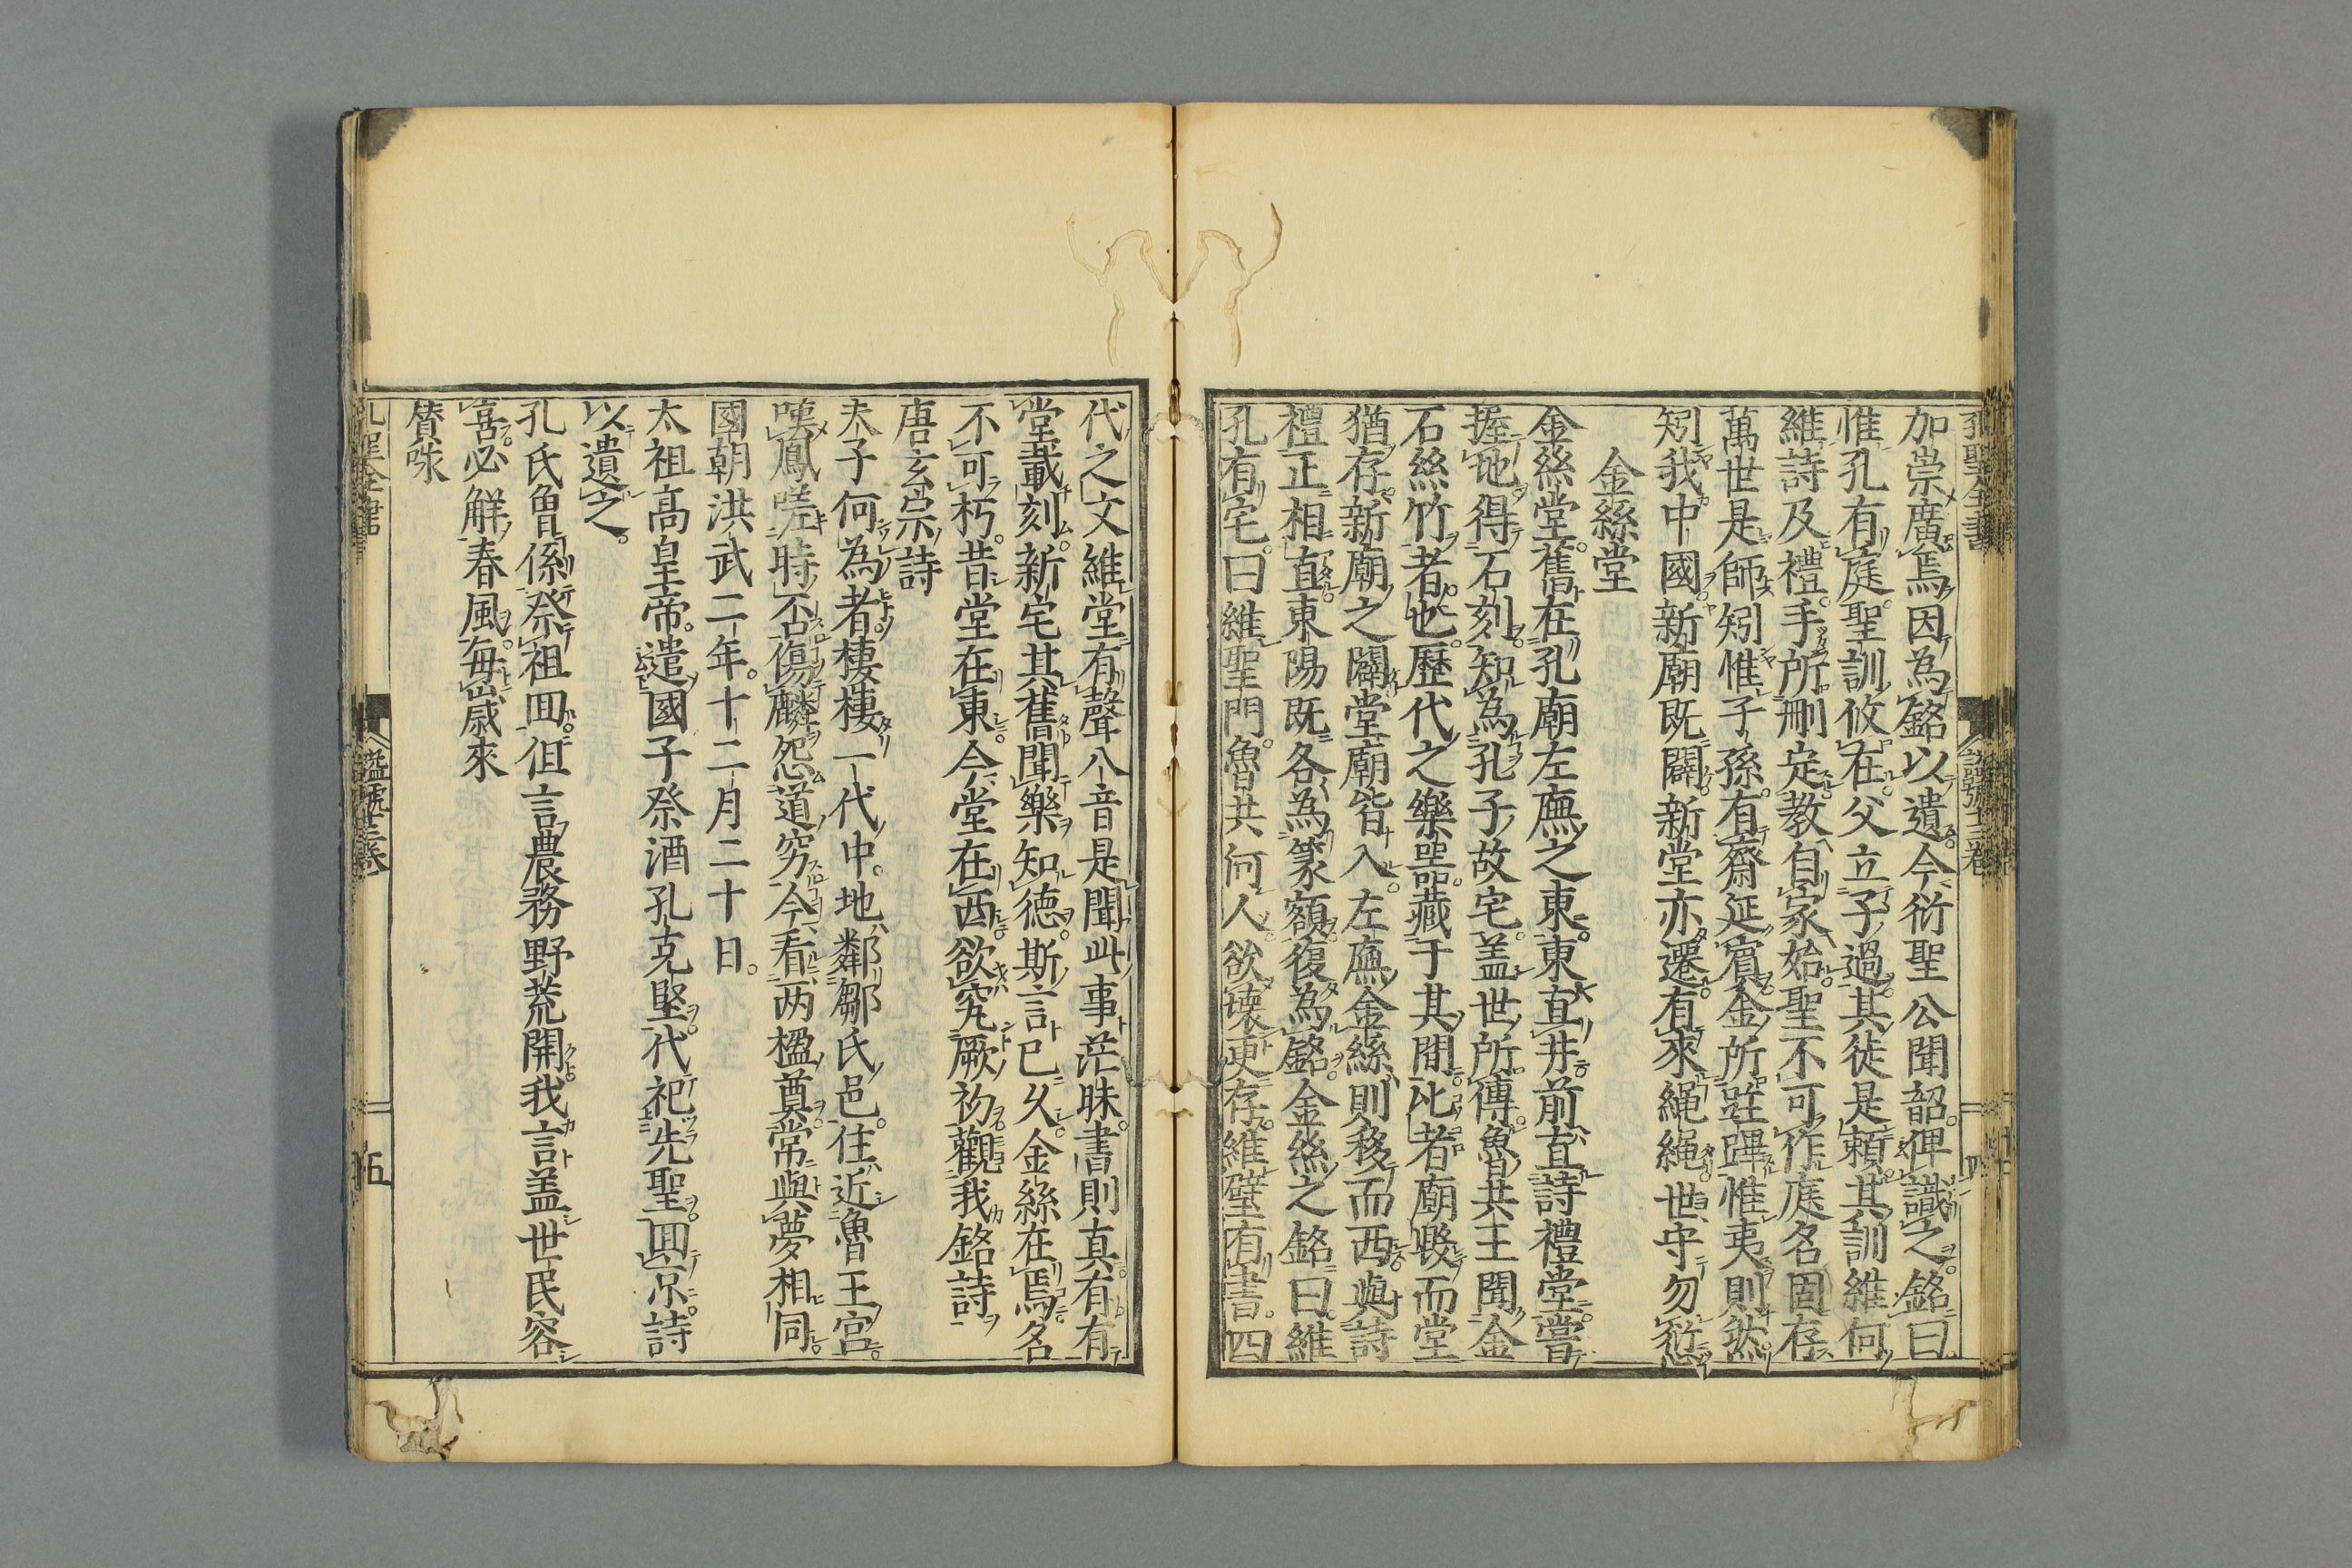 孔聖全書
諡號十三卷
加崇廣焉因為銘以遺今衍聖公聞韶俾識之銘曰
惟孔有庭聖訓攸在父立子過其徒是頼其訓維何
維詩及禮手所刪定教自家始聖不可作庭名固存
萬世是師矧惟子孫有齋延賓金所駐蹕惟夷則然
矧我中國新廟既闢新堂亦遷有來繩繩世守勿愆
金絲堂
金絲堂舊在孔廟左廡之東東直井前直詩禮堂嘗
握地得石刻知為孔子故宅盖世所傳魯共王聞金
石絲竹者也歷代之樂噐藏于其間比者廟燬而堂
猶存新廟之闢堂廟皆入左廡金絲則移而西與詩
禮正相直東陽既各為篆額復為銘金絲之銘曰維
孔有宅曰維聖門魯共何人欲壊更存維壁有書四
代之文維堂有聲八音是聞此事茫昧書則真有有
堂載刻新宅其舊聞樂知德斯言已乆金絲在焉名
不可朽昔堂在東今堂在西欲究厥初觀我銘詩
唐玄宗詩
夫子何為者棲棲一代中地鄰鄹氏邑住近魯王宮
嘆鳳嗟時否傷麟怨道穷今看两楹奠常與夢相同
國朝洪武二年十二月二十日
太祖高皇帝遣國子祭酒孔克堅代祀先聖囬京詩
以遺之
孔氏魯係祭祖囬但言農務野荒開我言盖世民容
喜必解春風每歲來
賛咏
孔聖全書
諡號十三卷
五